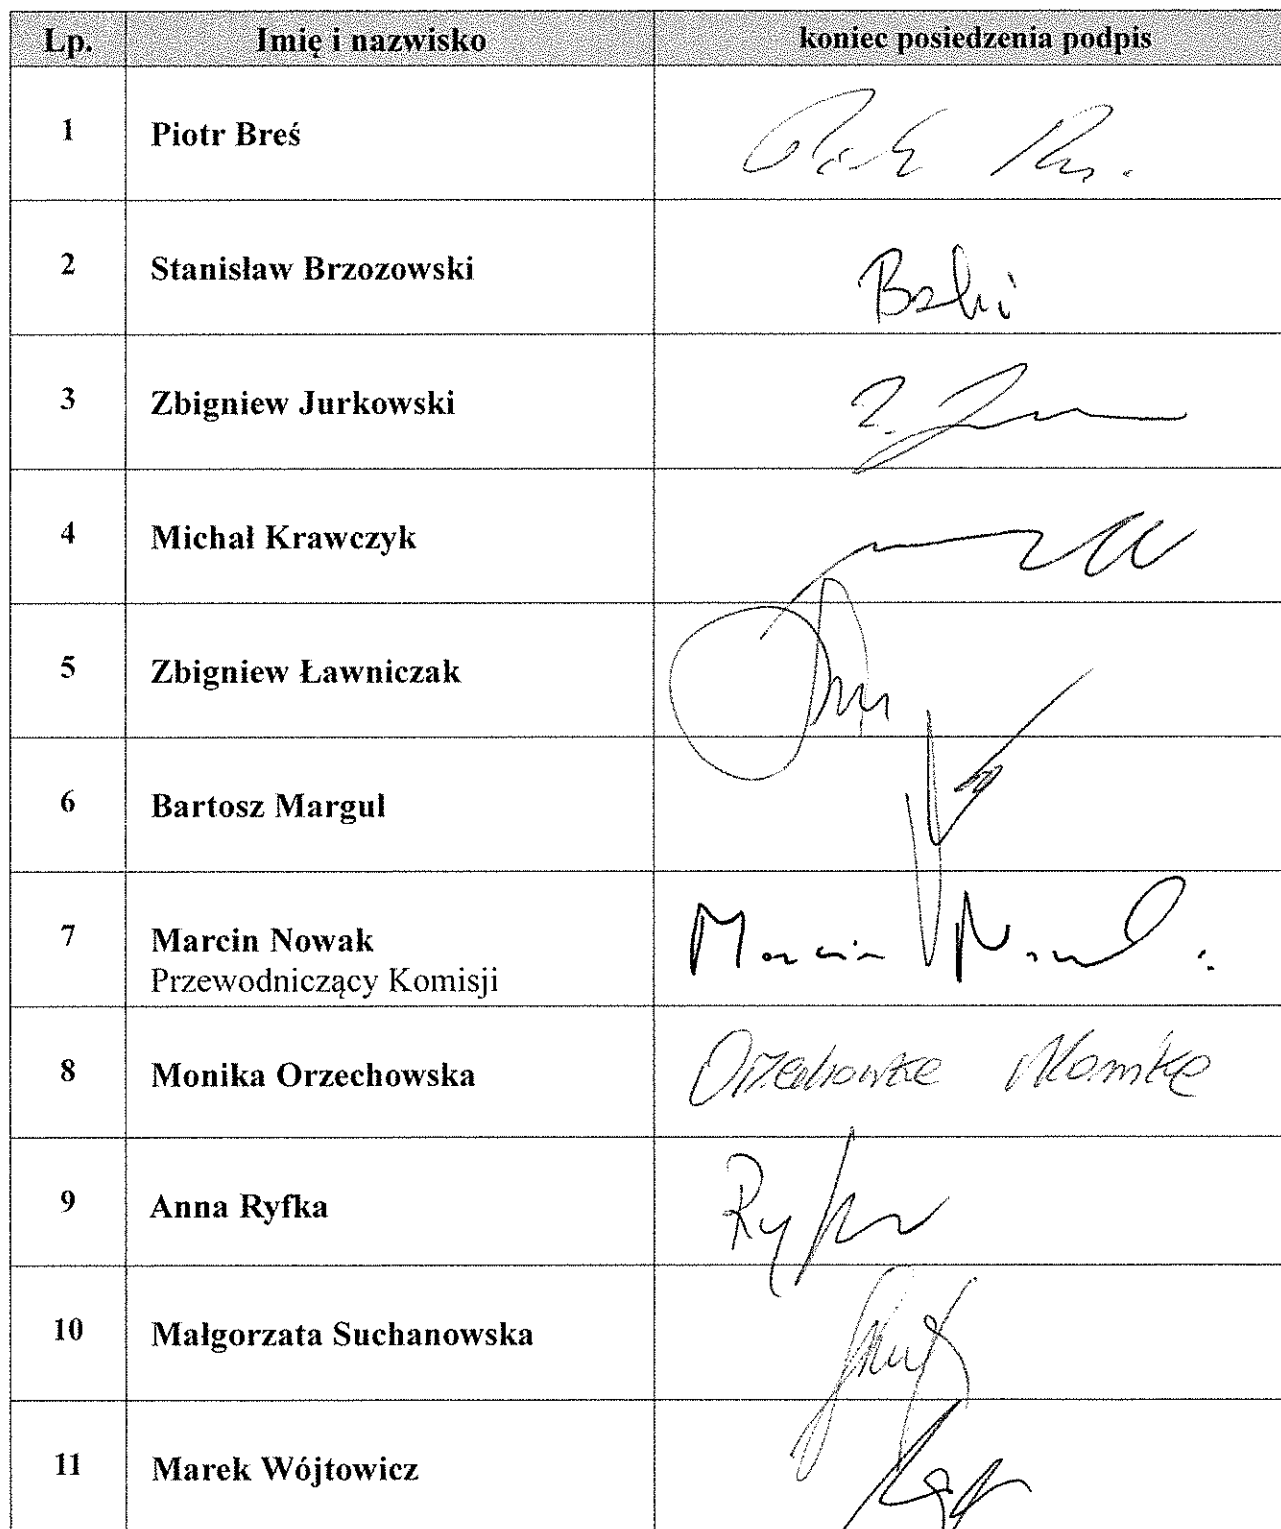 Lp. Imię i nazwisko koniec posiedzenia podpis
1 Piotr Breś
2 Stanisław Brzozowski
3 Zbigniew Jurkowski
4 Michał Krawczyk
5 Zbigniew Ławniczak
6 Bartosz Margul
7 Marcin Nowak Marcin Nowak
Przewodniczący Komisji
8 Monika Orzechowska Orzechowska Monika
9 Anna Ryfka Ryfka
10 Małgorzata Suchanowska
11 Marek Wójtowicz